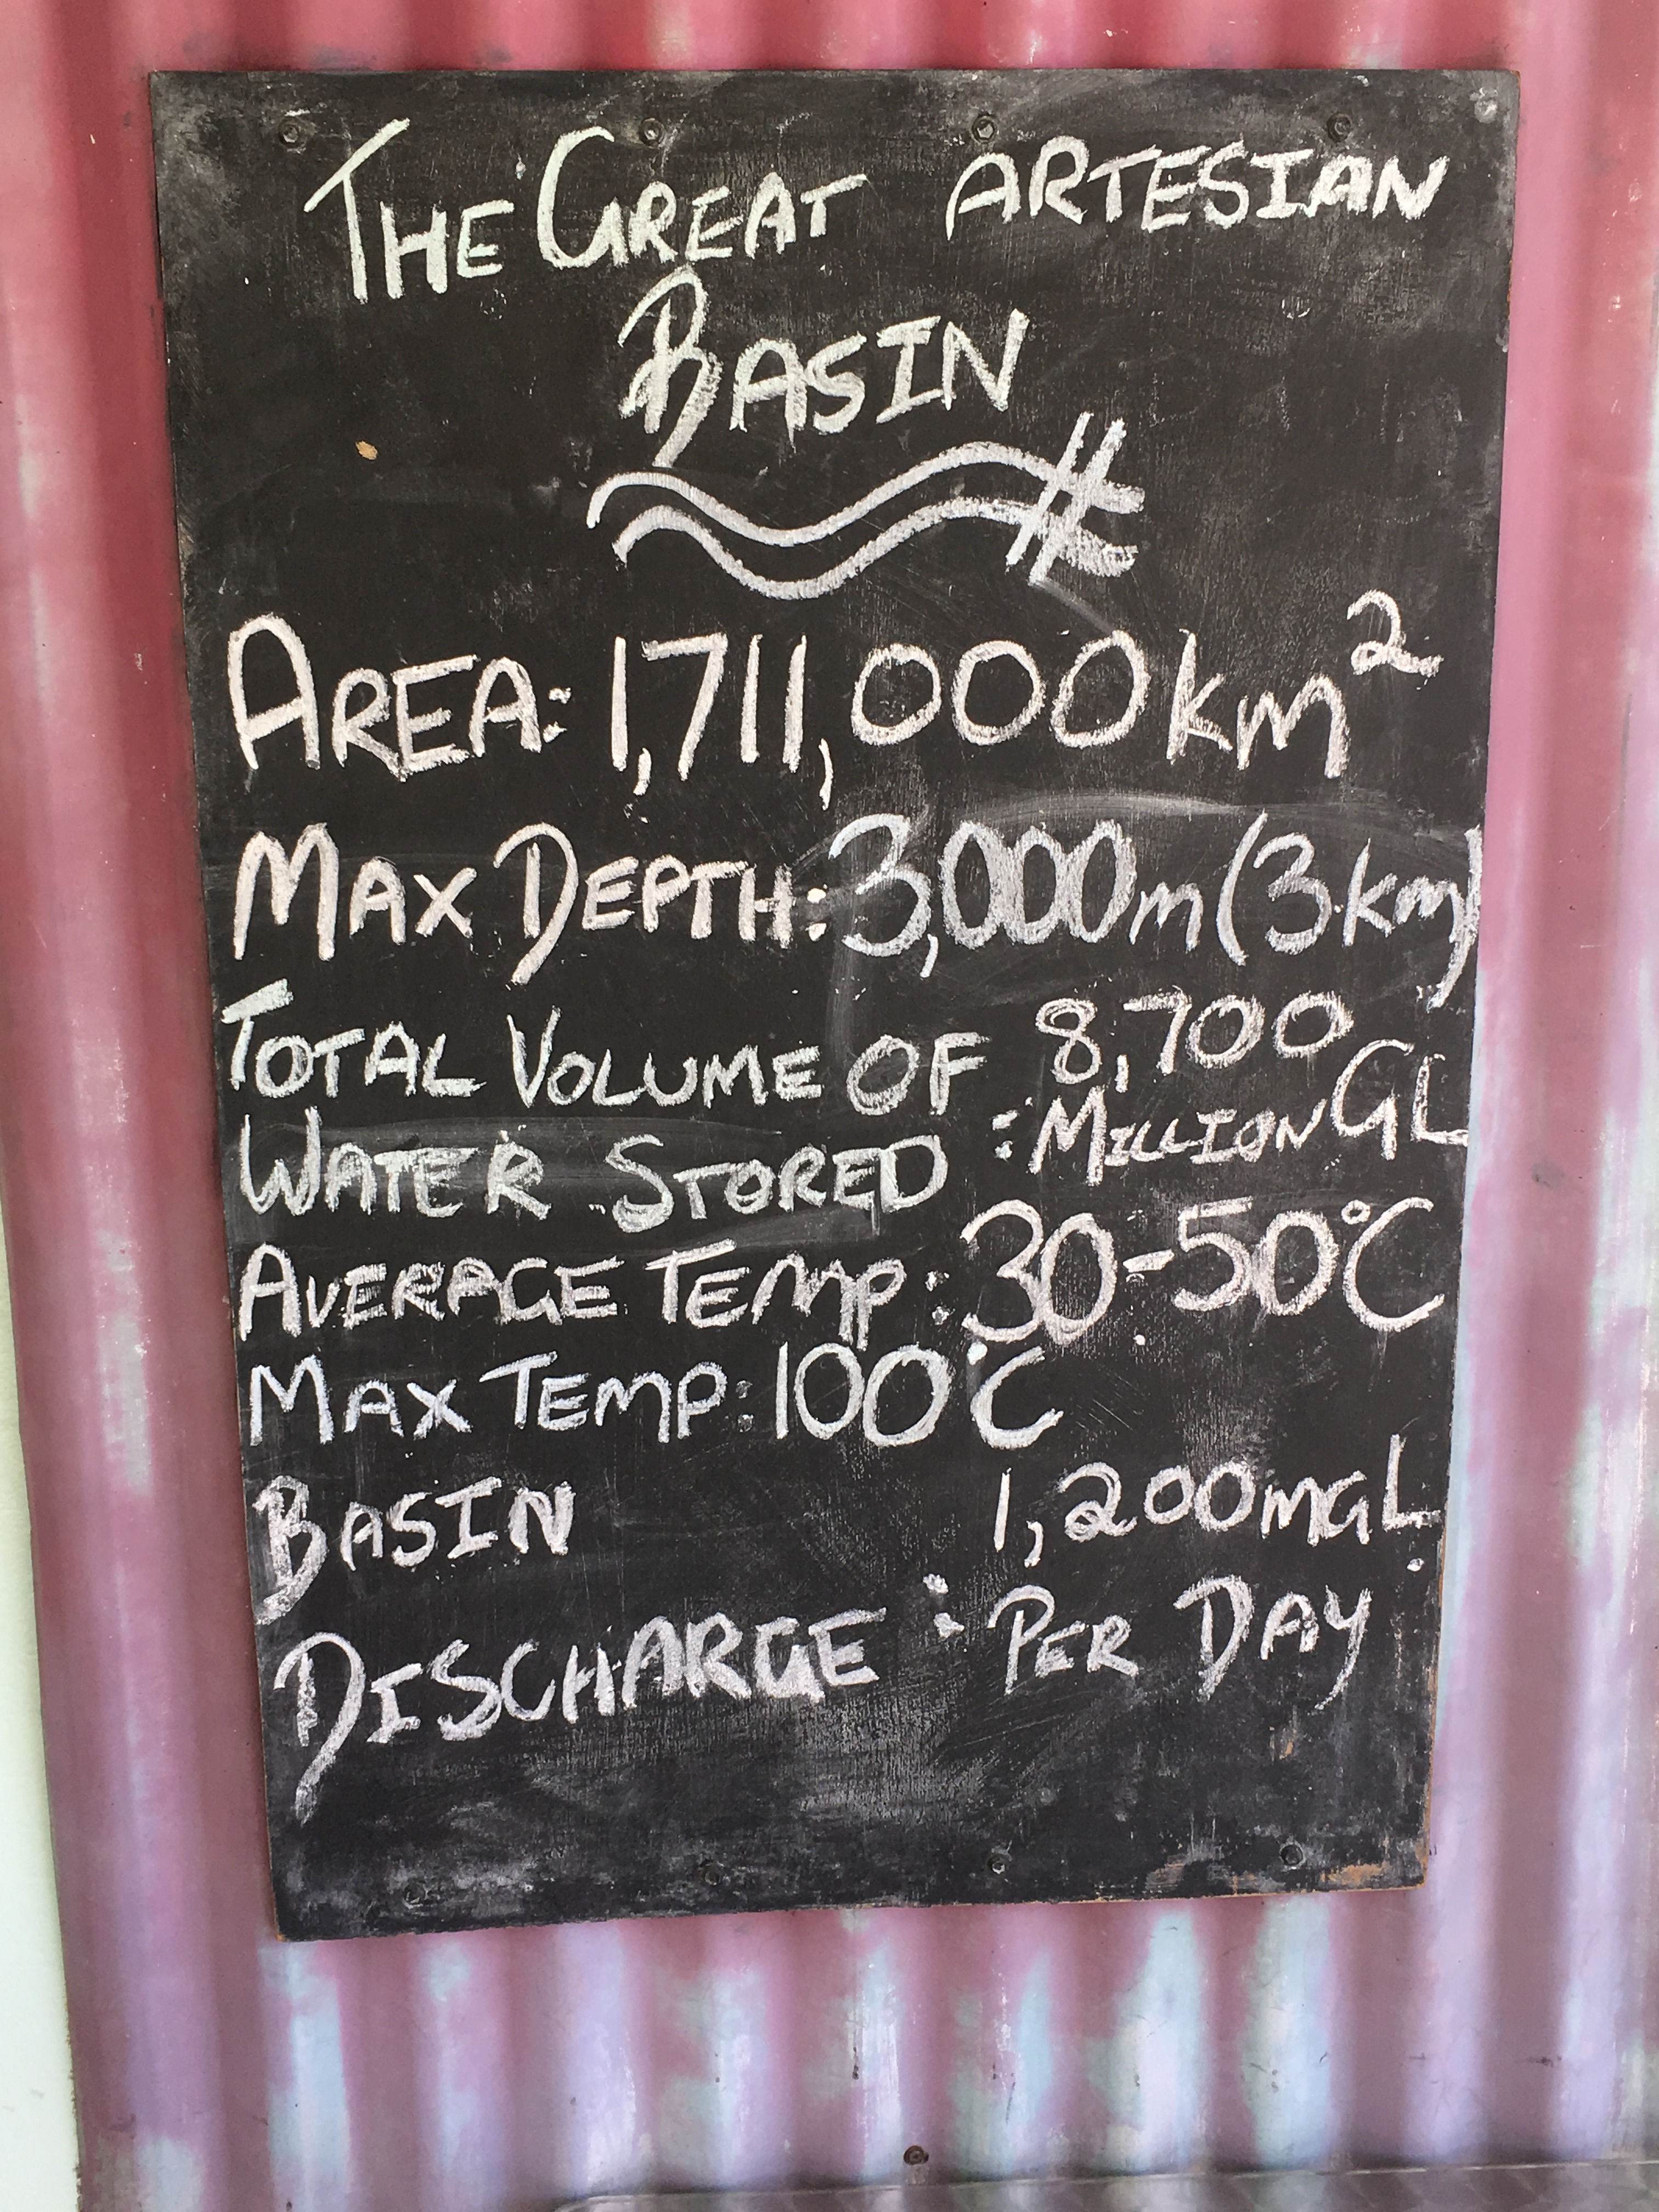 THE GREAT ARTESIAN
BASIN
AREA: 1,711,000 km²
MAX DEPTH: 3,000m (3km)
TOTAL VOLUME OF 8,700
WATER STORED : MILLION GL
AVERAGE TEMP: 30-50°C
MAX TEMP: 100°C
BASIN 1,200mGL
DISCHARGE : PER DAY